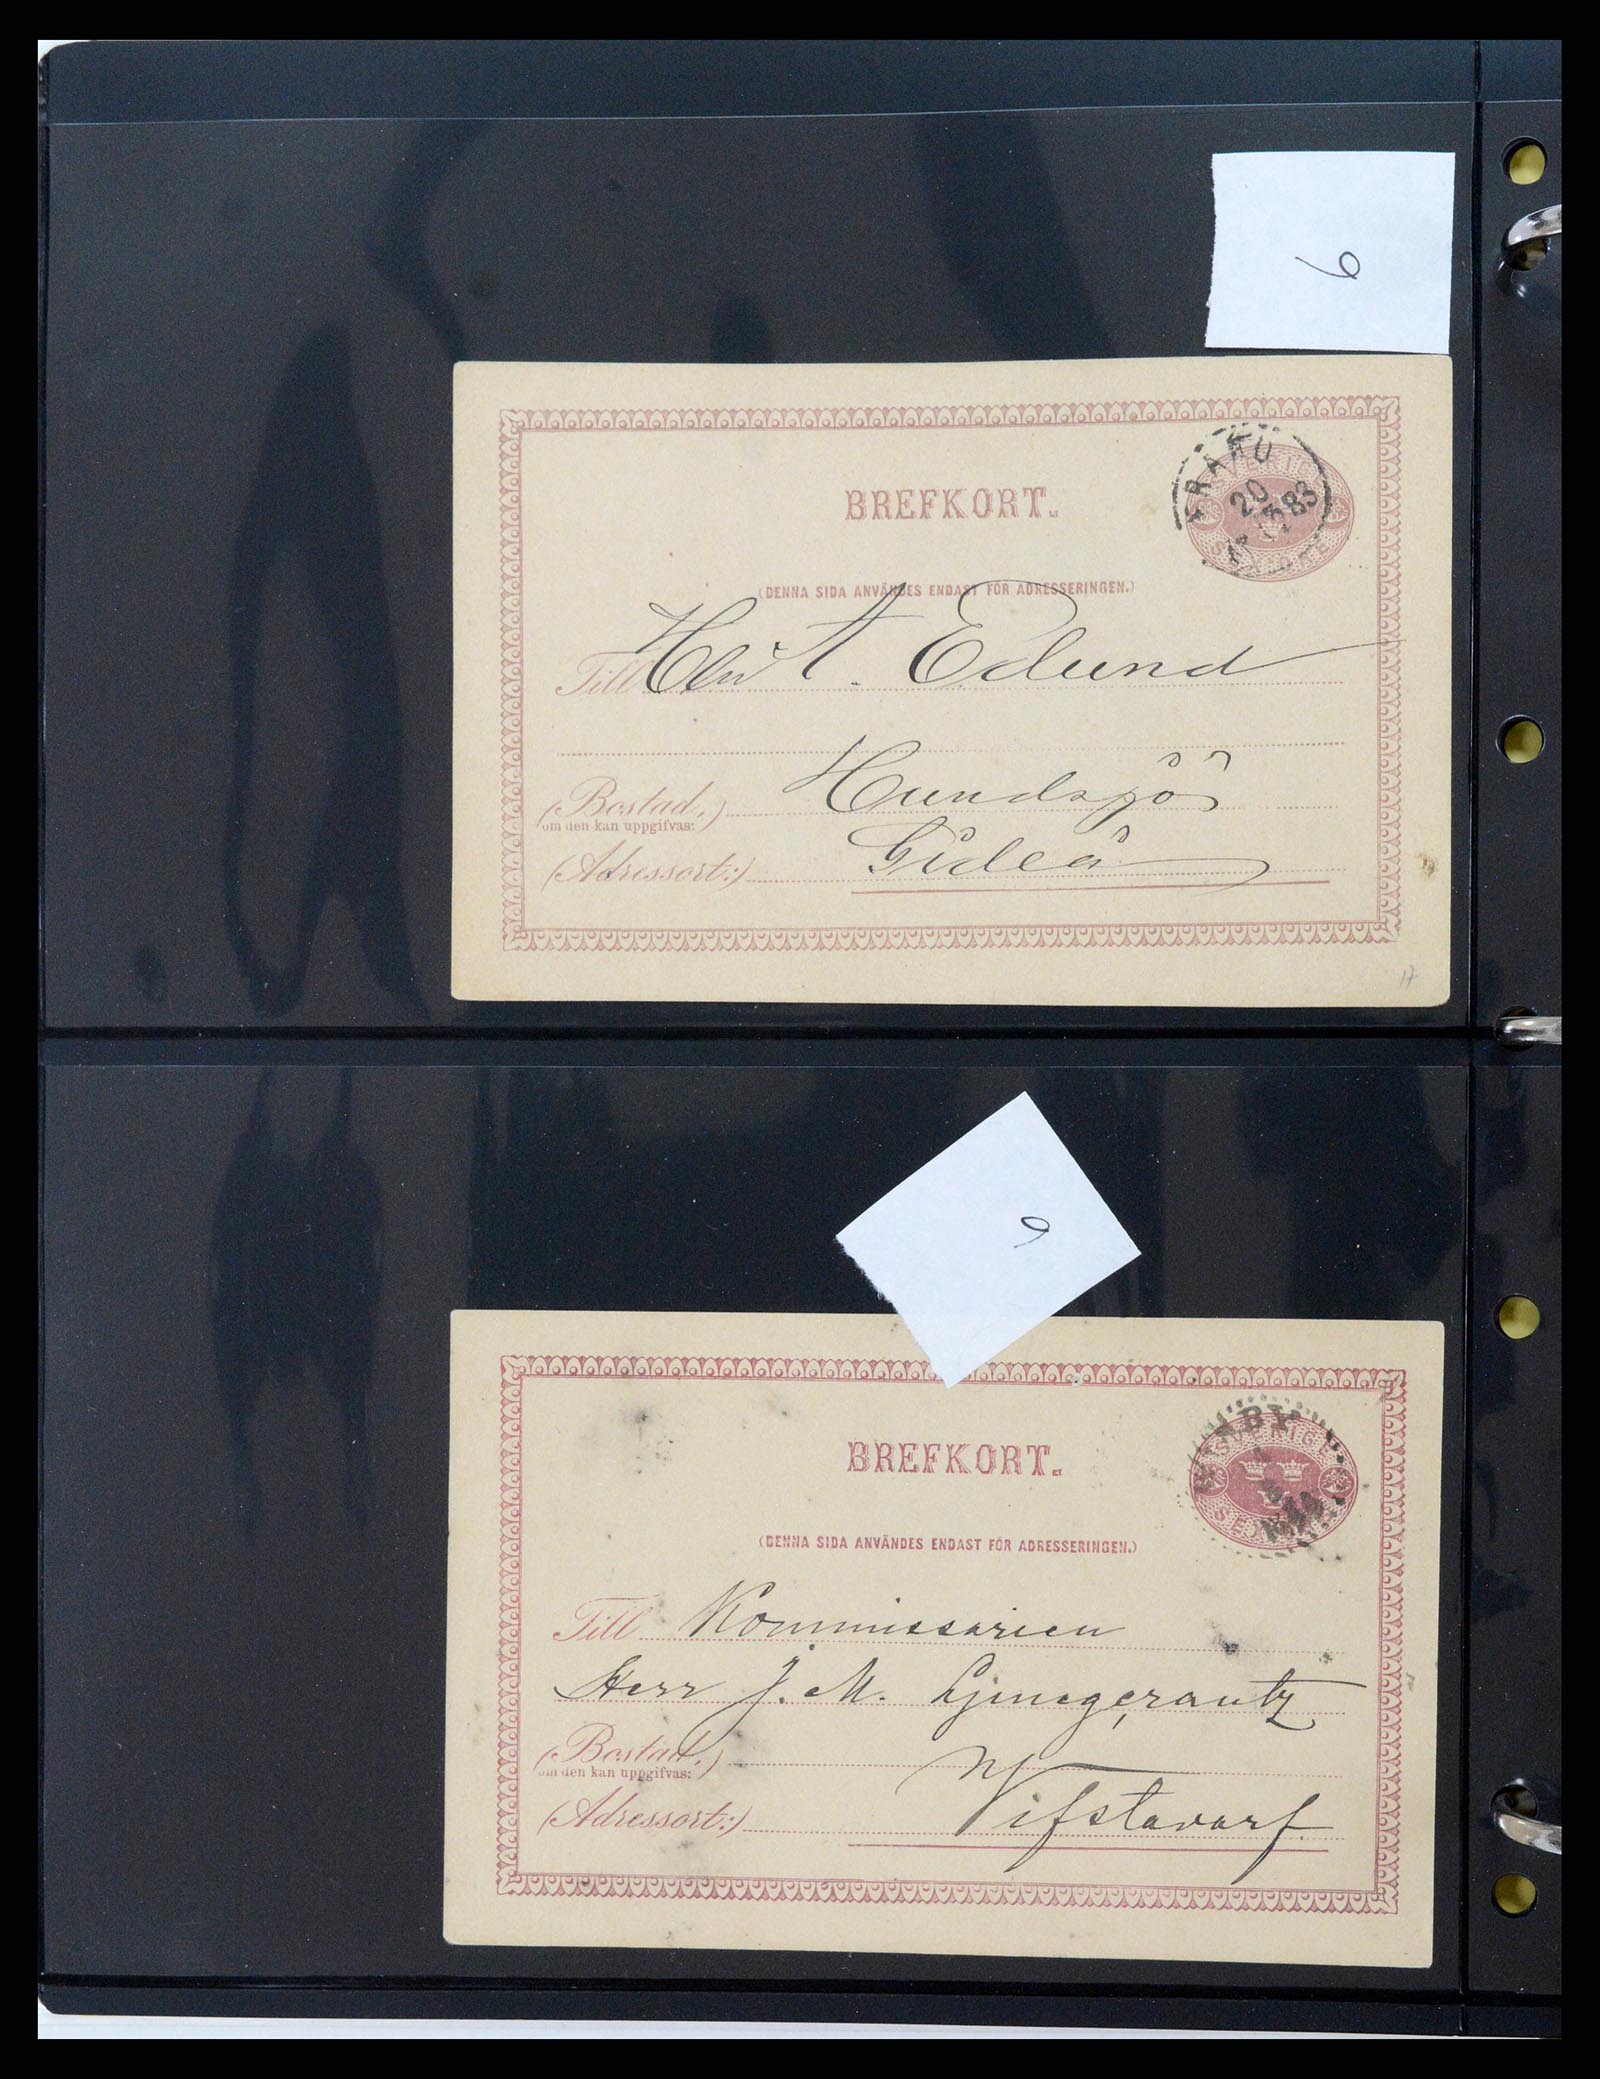 9
TRANÖ
20
83
SVERIGE
BREFKORT.
(DENNA SIDA ANVÄNDES ENDAST FÖR ADRESSERINGEN.)
Till Herr A. Edlund
(Bostad,) Hundsjö
om den kan uppgifvas:
(Adressort:) Gideå
17
9
BY
SVERIGE
BREFKORT.
(DENNA SIDA ANVÄNDES ENDAST FÖR ADRESSERINGEN.)
Till Kommissarien
Herr J. M. Ljungcrantz
(Bostad,)
om den kan uppgifvas:
(Adressort:) Vifstavarf.